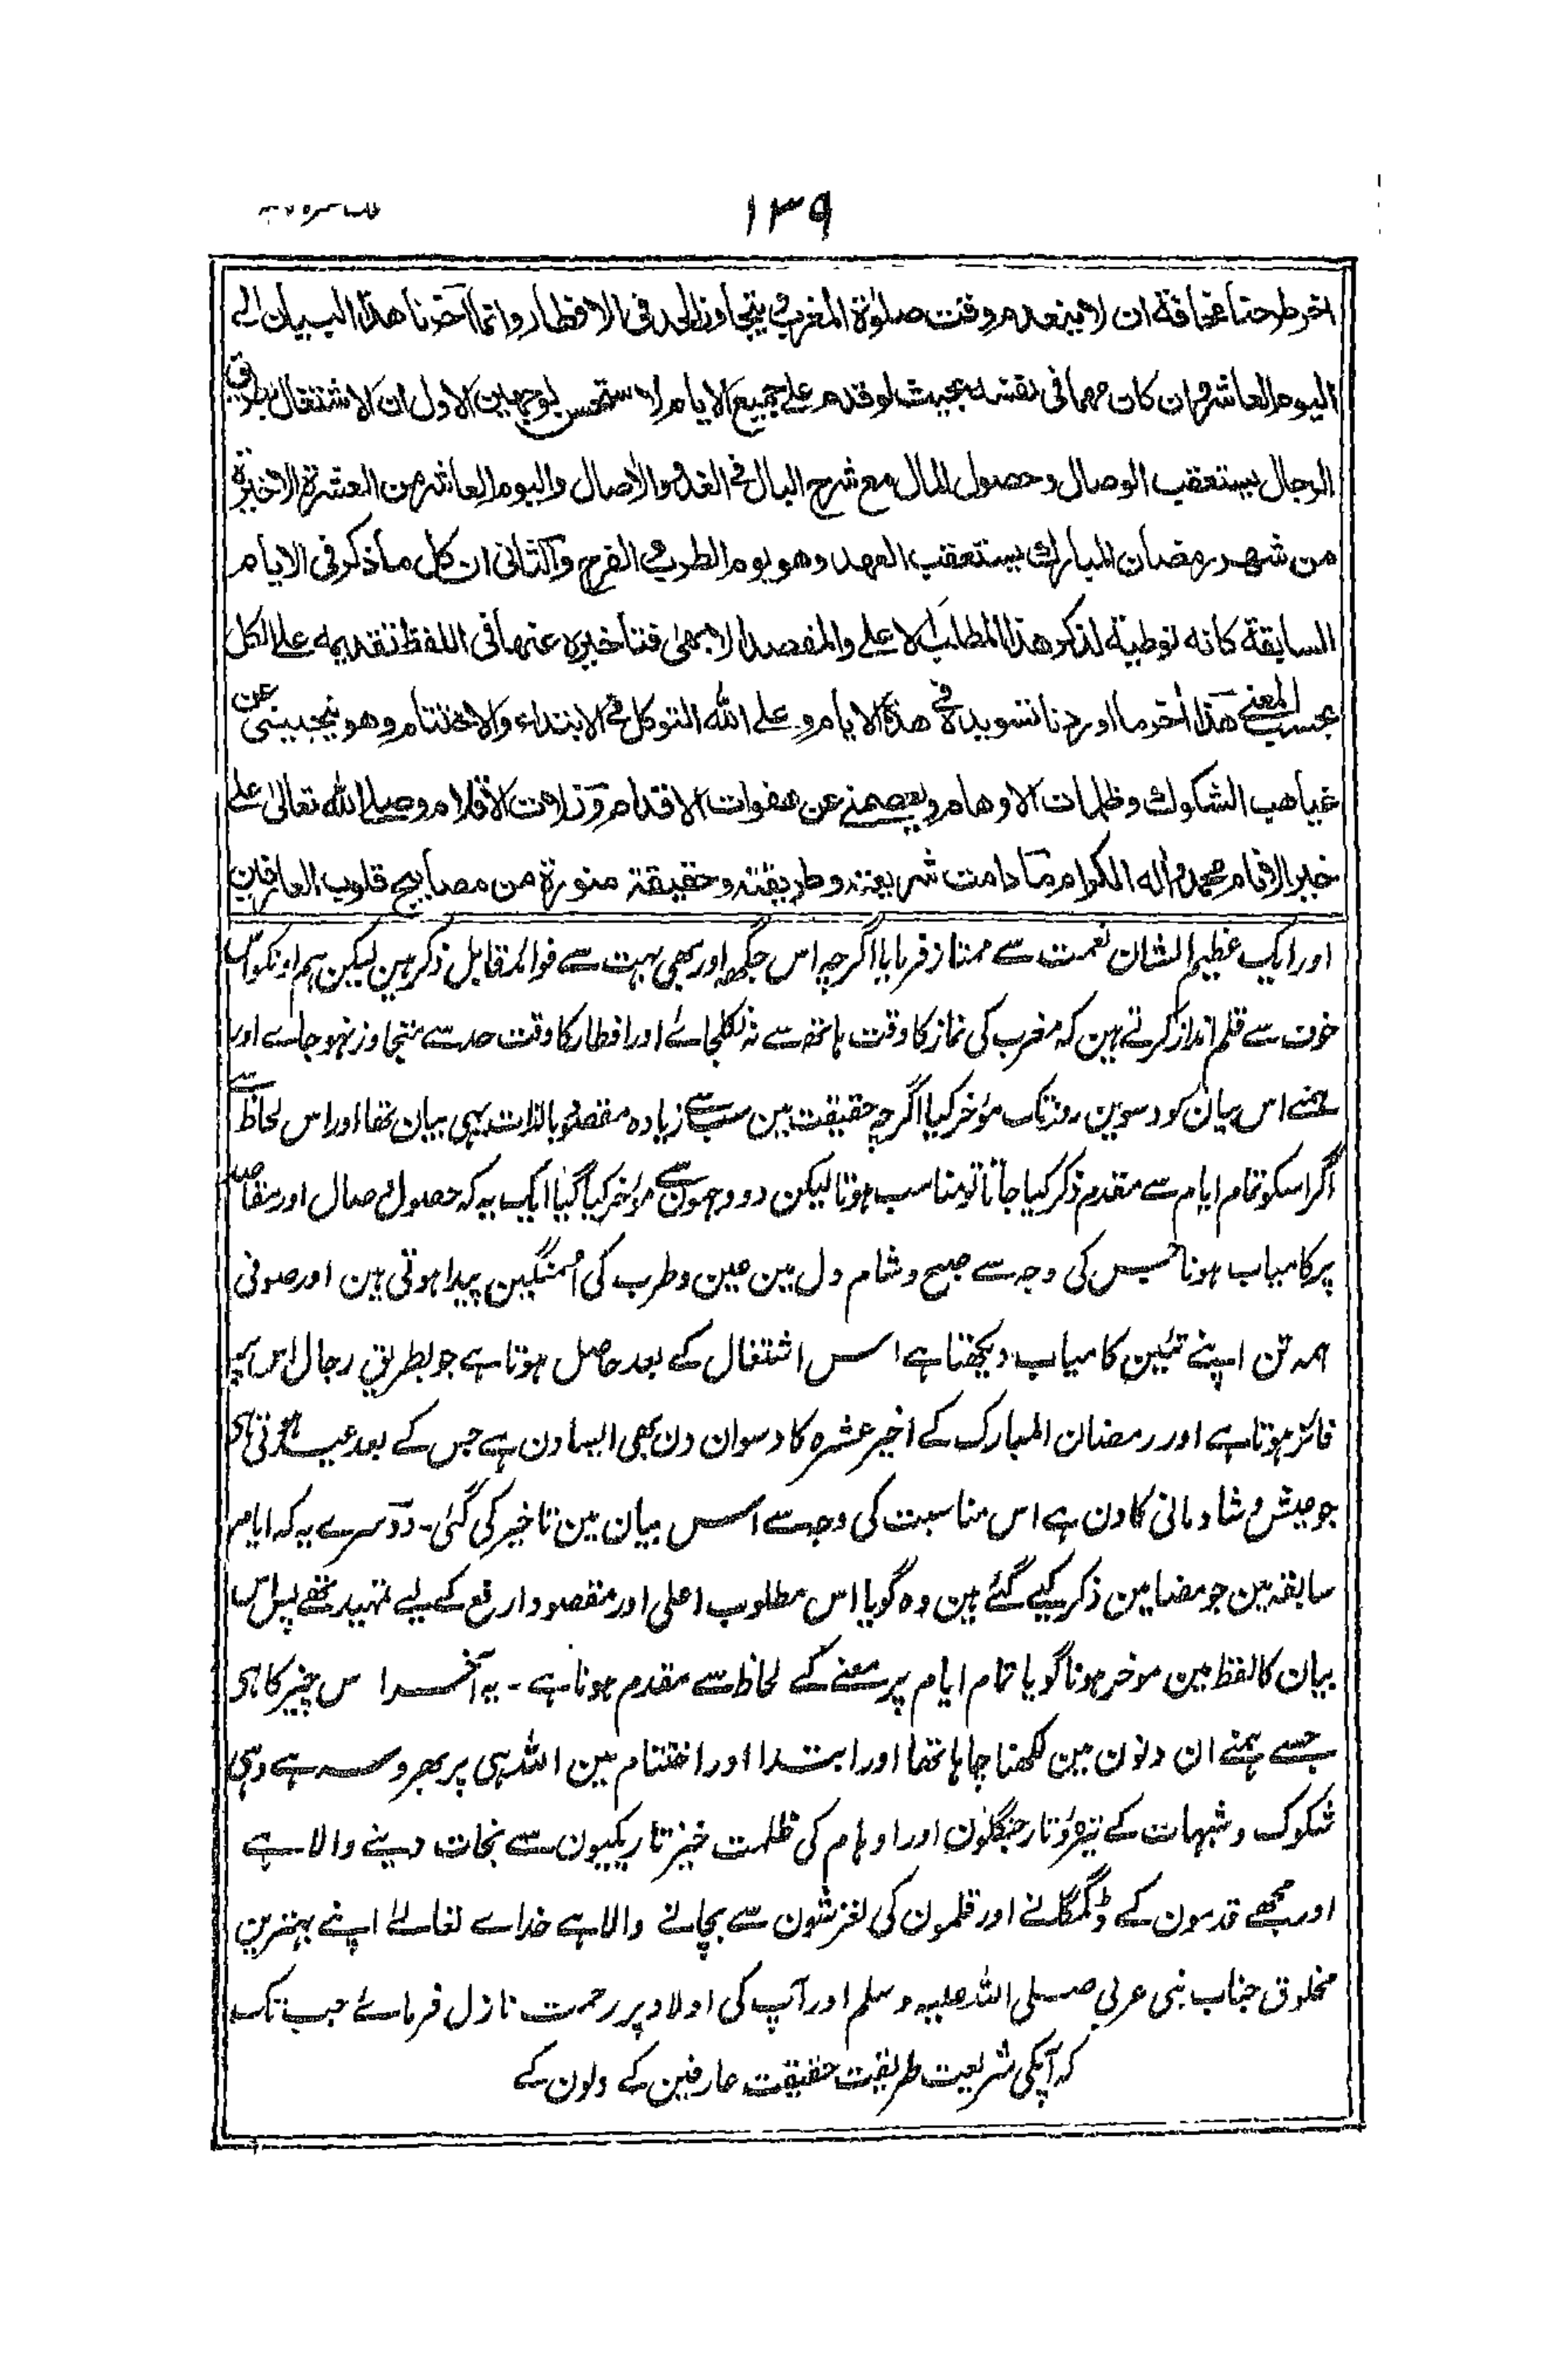 ١٣٩
اخر طرحتها مخافة ان لا ينعدم وقت صلوٰة المغرب و يتجاوز الحد فى الافطار وانما آخرنا هذا البيان الى
اليوم العاشر و ان كان مهما فى نفسه بحيث لو قدم على جميع الايام لاستحسن لوجهين الاول ان الاشتغال بطريق
الرجال يستعقب الوصال وحصول المال مع شرح البال فى الغدو والاصال واليوم العاشر من العشرة الاخيرة
من شهر رمضان المبارك يستعقب العهد وهو يوم الطرب و الفرح وآلثانى ان كل ما ذكر فى الايام
السابقة كانه توطية لذكر هذا المطلب الاعلى والمقصد الابهى فتاخيره عنها فى اللفظ تقديمه على الكل
بحسب المعنى هذا آخر ما اوردنا تسويده فى هذه الايام و على الله التوكل فى الابتداء والاختتام وهو ينجينى عن
غياهب الشكوك وظلمات الاوهام ويعصمنى عن هفوات الاقدام وزلات الاقلام وصلى الله تعالىٰ على
خير الانام محمد و اله الكرام ما دامت شريعته وطريقته وحقيقة منورة من مصابيح قلوب العارفين
اور ایک عظیم الشان نعمت سے ممتاز فرمایا اگرچہ اس جگھہ اور بھی بہت سے فوائد قابل ذکر ہین لیکن ہم اونکو اس
خوف سے قلم انداز کرتے ہین کہ مغرب کی نماز کا وقت ہاتھہ سے نہ نکلجائے اور افطار کا وقت حد سے متجاوز نہو جاے اور
ہمنے اس بیان کو دسوین روز تک مؤخر کیا اگرچہ حقیقت مین سب سے زیادہ مقصود بالذات یہی بیان تھا اور اس لحاظ سے
اگر اسکو تمام ایام سے مقدم ذکر کیا جاتا تو مناسب ہوتا لیکن دو وجہون سے مؤخر کیا گیا ایک یہ کہ حصول وصال اور مقاصد
پر کامیاب ہونا جس کی وجہ سے صبح و شام دل مین عین و طرب کی اُمنگین پیدا ہوتی ہین اور صوفی
ہمہ تن اپنے تئین کامیاب دیکھتا ہے اس اشتغال کے بعد حاصل ہوتا ہے جو بطریق رجال اس پر
فائز ہوتا ہے اور رمضان المبارک کے اخیر عشرہ کا دسوان دن بھی ایسا دن ہے جس کے بعد عید آتی ہے
جو عیش و شادمانی کا دن ہے اس مناسبت کی وجہ سے اس بیان مین تاخیر کی گئی۔ دوسرے یہ کہ ایام
سابقہ مین جو مضامین ذکر کیے گئے ہین وہ گویا اس مطلوب اعلی اور مقصود ارفع کے لیے تمہید تھے پس اس
بیان کا لفظ مین موخر ہونا گویا تمام ایام پر معنے کے لحاظ سے مقدم ہونا ہے ۔ یہ آخر اس چیز کا ہی
جسے ہمنے ان دنون مین لکھنا چاہا تھا اور ابتدا اور اختتام مین اللہ ہی پر بھروسہ ہے وہی
شکوک و شبہات کے تیرہ و تار جنگلون اور اوہام کی ظلمت خیز تاریکیون سے نجات دینے والا ہے
اور مجھے قدمون کے ڈگمگانے اور قلمون کی لغزشون سے بچانے والا ہے خداے تعالےٰ اپنے بہترین
مخلوق جناب نبی عربی صلی اللہ علیہ و سلم اور آپ کی اولاد پر رحمت نازل فرمائے جب تک
کہ آپکی شریعت طریقت حقیقت عارفین کے دلون کے